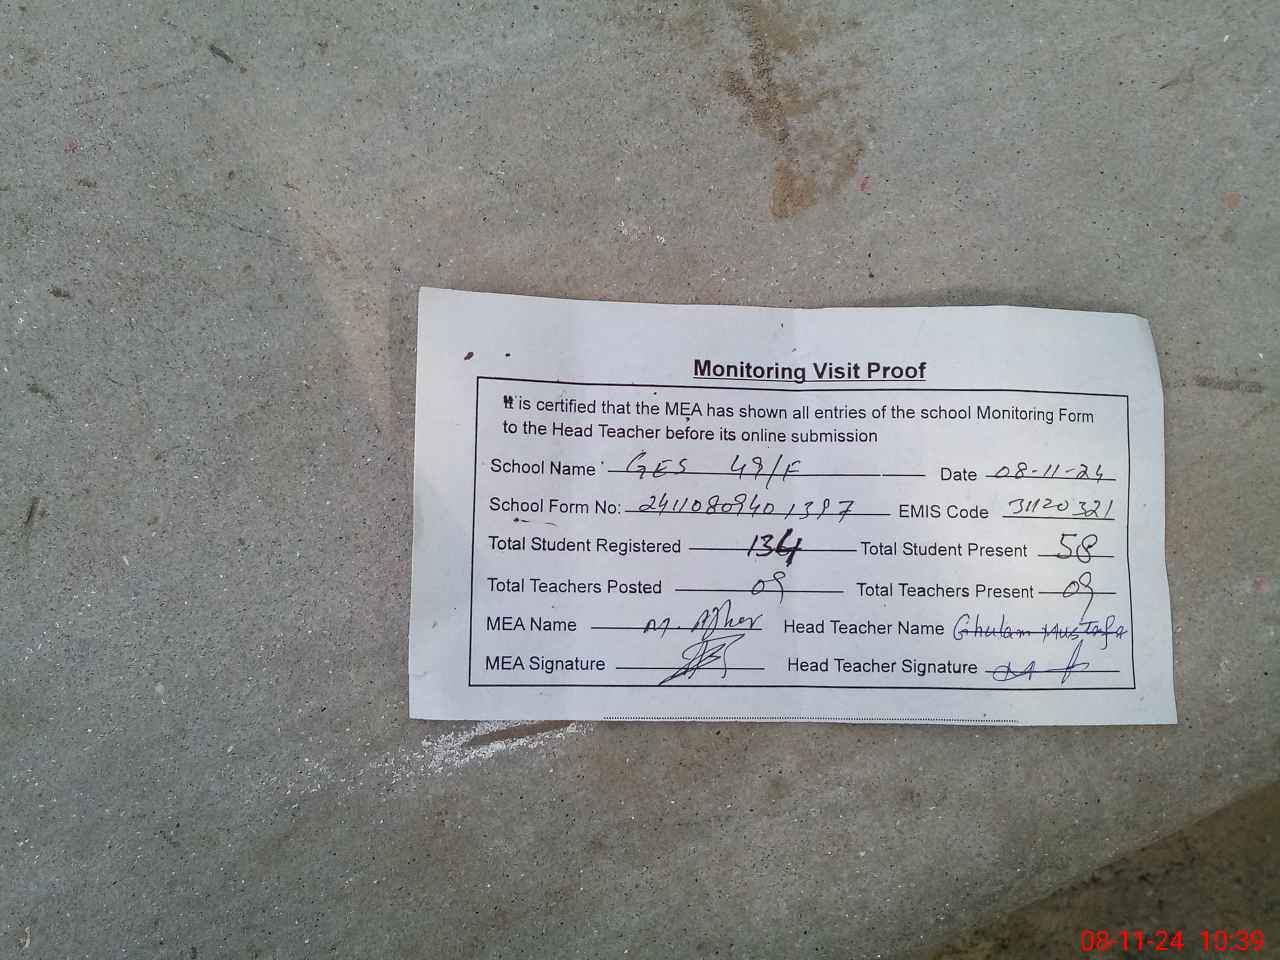 Monitoring Visit Proof
It is certified that the MEA has shown all entries of the school Monitoring Form
to the Head Teacher before its online submission
School Name GES 49/F Date 08-11-24
School Form No: 24110809401397 EMIS Code 31120321
Total Student Registered 134 Total Student Present 58
Total Teachers Posted 09 Total Teachers Present 09
MEA Name M. Head Teacher Name Ghulam Mustafa
MEA Signature Head Teacher Signature
08-11-24 10:39